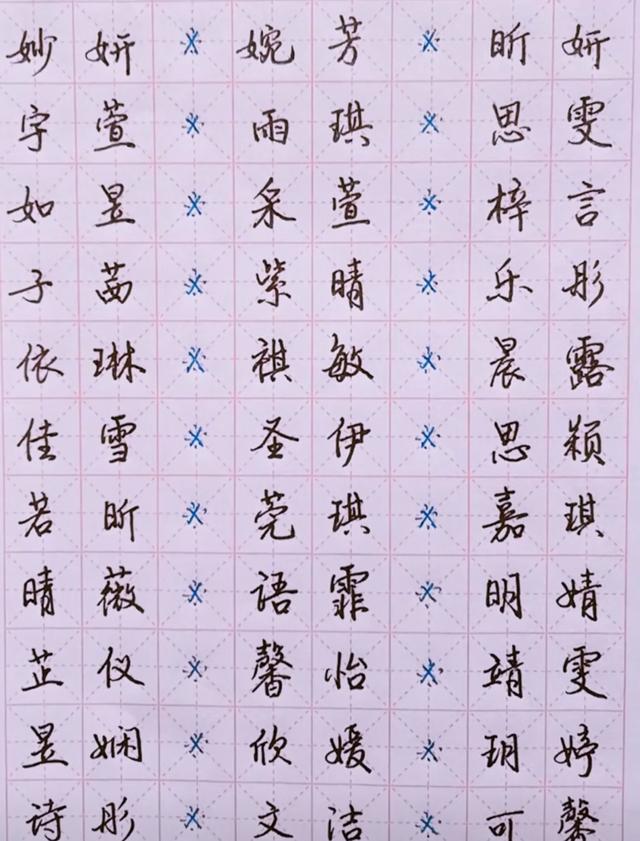 妙妍※婉芳※昕妍
字萱※雨琪※思雯
如昱※采萱※梓言
子茜※紫晴※乐彤
依琳※祺敏※晨露
佳雪※圣伊※思颖
若昕※莞琪※嘉琪
晴薇※语霏※明婧
芷仪※馨怡※靖雯
昱娴※欣媛※玥婷
诗彤※文洁※可馨